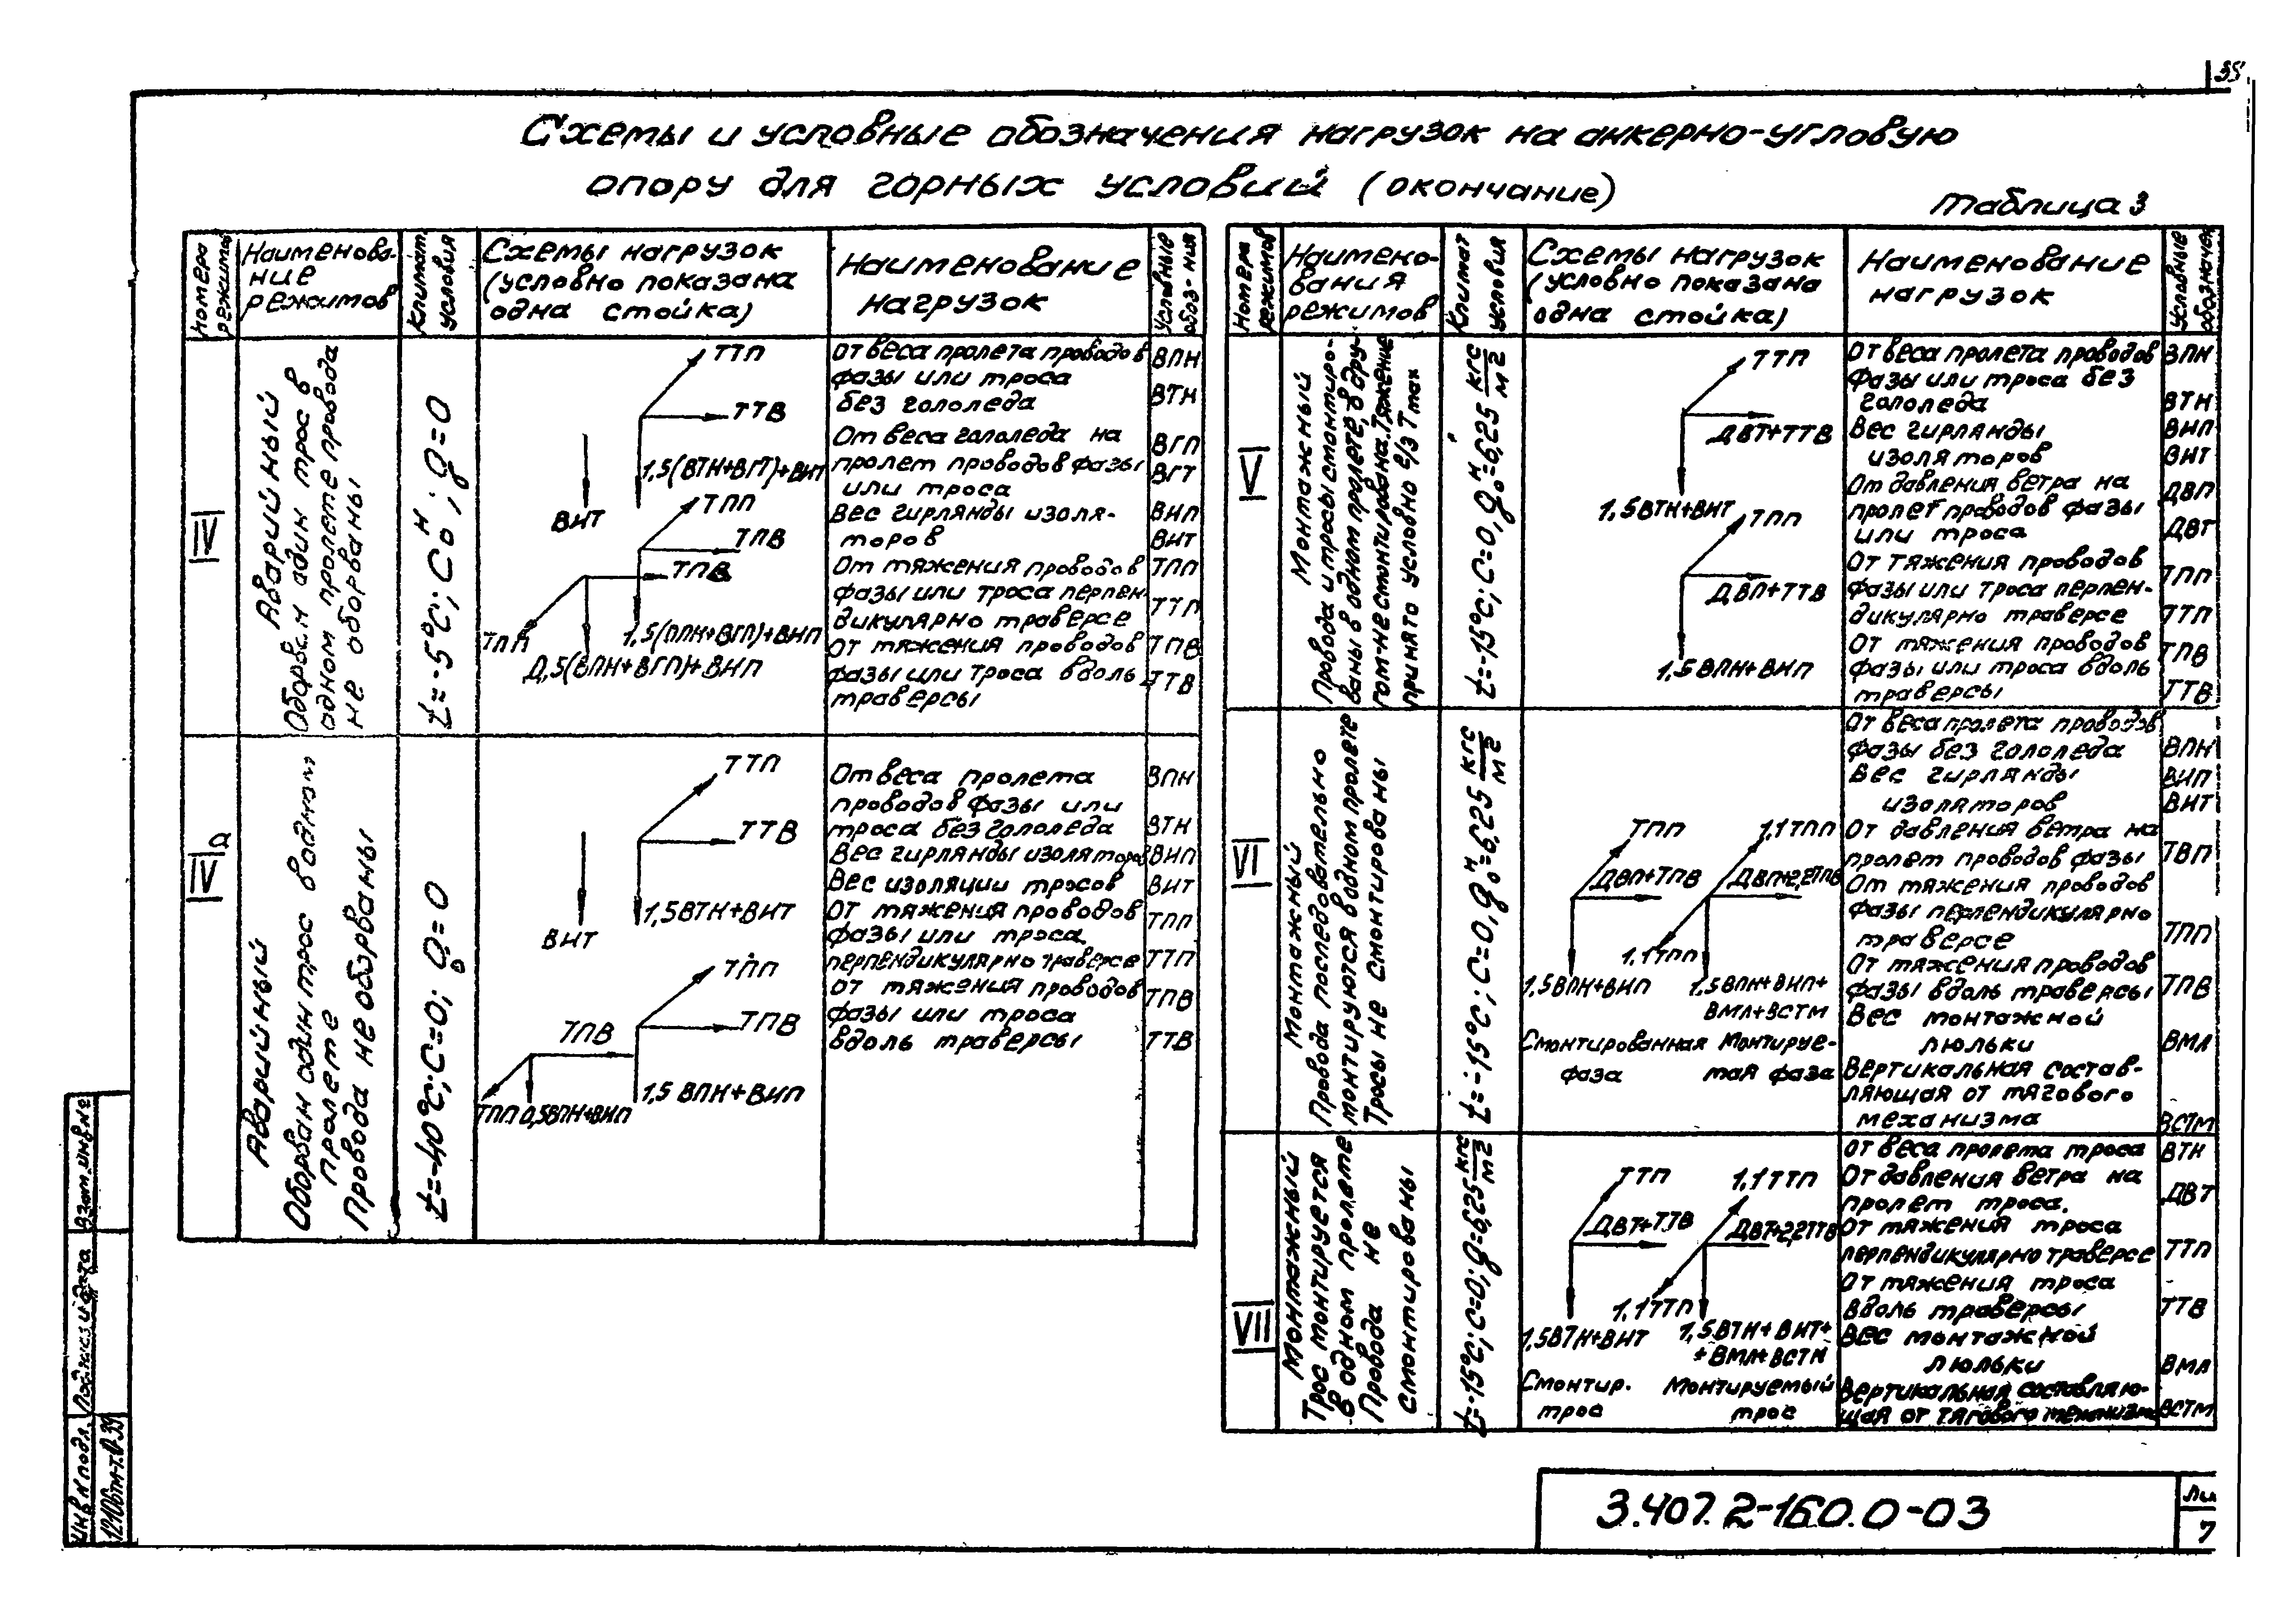 35
Схемы и условные обозначения нагрузок на анкерно-угловую
опору для горных условий (окончание)
Таблица 3
Номера режимов
Наименова-
ние
режимов
Климат. условия
Схемы нагрузок
(условно показана
одна стойка)
Наименование
нагрузок
Условные обоз-ния
IV
Аварийный
Оборван один трос в
одном пролете провода
не оборваны
t=-5°C; C₀ᴴ; q=0
ТТП
ТТВ
1,5(ВТН+ВГТ)+ВИТ
ВИТ
ТПП
ТПВ
ТПВ
ТПП
1,5(ВПН+ВГП)+ВИП
0,5(ВПН+ВГП)+ВИП
От веса пролета проводов
фазы или троса
без гололеда
От веса гололеда на
пролет проводов фазы
или троса
Вес гирлянды изоля-
торов
От тяжения проводов
фазы или троса перпен-
дикулярно траверсе
От тяжения проводов
фазы или троса вдоль
траверсы
ВПН
ВТН
ВГП
ВГТ
ВИП
ВИТ
ТПП
ТТП
ТПВ
ТТВ
IVа
Аварийный
Оборван один трос в одном
пролете
Провода не оборваны
t=-40°C; C=0; q=0
ТТП
ТТВ
1,5ВТН+ВИТ
ВИТ
ТПП
ТПВ
ТПВ
1,5 ВПН+ВИП
ТПП 0,5ВПН+ВИП
От веса пролета
проводов фазы или
троса без гололеда
Вес гирлянды изоляторов
Вес изоляции тросов
От тяжения проводов
фазы или троса
перпендикулярно траверсе
От тяжения проводов
фазы или троса
вдоль траверсы
ВПН
ВТН
ВИП
ВИТ
ТПП
ТТП
ТПВ
ТТВ
Номера режимов
Наимено-
вания
режимов
Климат условия
Схемы нагрузок
(условно показана
одна стойка)
Наименование
нагрузок
Условные обознач
V
Монтажный
Провода и тросы смонтиро-
ваны в одном пролете, в дру-
гом-не смонтирована. Тяжение
принято условно 2/3 Tmax
t=-15°C; C=0, q₀ᴴ=6,25 кгс/м2
ТТП
ДВТ+ТТВ
1,5ВТН+ВИТ
ТПП
ДВП+ТТВ
1,5 ВПН+ВИП
От веса пролета проводов
фазы или троса без
гололеда
Вес гирлянды
изоляторов
От давления ветра на
пролет проводов фазы
или троса
От тяжения проводов
фазы или троса перпен-
дикулярно траверсе
От тяжения проводов
фазы или троса вдоль
траверсы
ВПН
ВТН
ВИП
ВИТ
ДВП
ДВТ
ТПП
ТТП
ТПВ
ТТВ
VI
Монтажный
Провода последовательно
монтируются в одном пролете
Тросы не смонтированы
t=-15°C; C=0, q₀ᴴ=6,25 кгс/м2
ТПП
ДВП+ТПВ
1,5ВПН+ВИП
1,1ТПП
ДВП+2,2ТПВ
1,1ТПП
1,5ВПН+ВИП+
ВМЛ+ВСТМ
Смонтированная
фаза
Монтируе-
мая фаза
От веса пролета проводов
фазы без гололеда
Вес гирлянды
изоляторов
От давления ветра на
пролет проводов фазы
От тяжения проводов
фазы перпендикулярно
траверсе
От тяжения проводов
фазы вдоль траверсы
Вес монтажной
люльки
Вертикальная состав-
ляющая от тягового
механизма
ВПН
ВИП
ВИТ
ТВП
ТПП
ТПВ
ВМЛ
ВСТМ
VII
Монтажный
Трос монтируется
в одном пролете
Провода не
смонтированы
t=-15°C; C=0; q=6,25 кгс/м2
ТТП
ДВТ+ТТВ
1,5ВТН+ВИТ
1,1ТТП
ДВТ+2,2ТТВ
1,1ТТП
1,5ВТН+ВИТ+
+ВМЛ+ВСТМ
Смонтир.
трос
Монтируемый
трос
От веса пролета троса
От давления ветра на
пролет троса.
От тяжения троса
перпендикулярно траверсе
От тяжения троса
вдоль траверсы
Вес монтажной
люльки
Вертикальная составляю-
щая от тягового механизма
ВТН
ДВТ
ТТП
ТТВ
ВМЛ
ВСТМ
Взам. инв. №
Подпись и дата
Инв N подл.
3.407.2-160.0-03
Ли
7